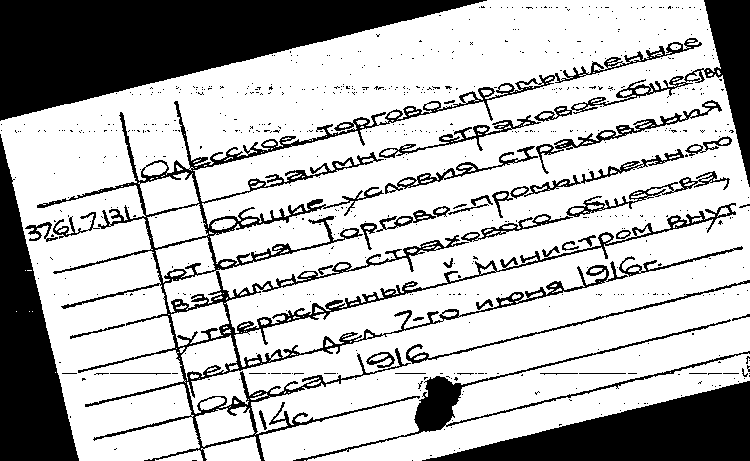 Одесское торгово-промышленное
взаимное страховое общество
37.61.7.131. Общие условия страхования
от огня Торгово-промышленного
взаимного страхового общества,
утвержденные г. Министром внут-
ренних дел 7-го июня 1916г.
Одесса, 1916
14с.